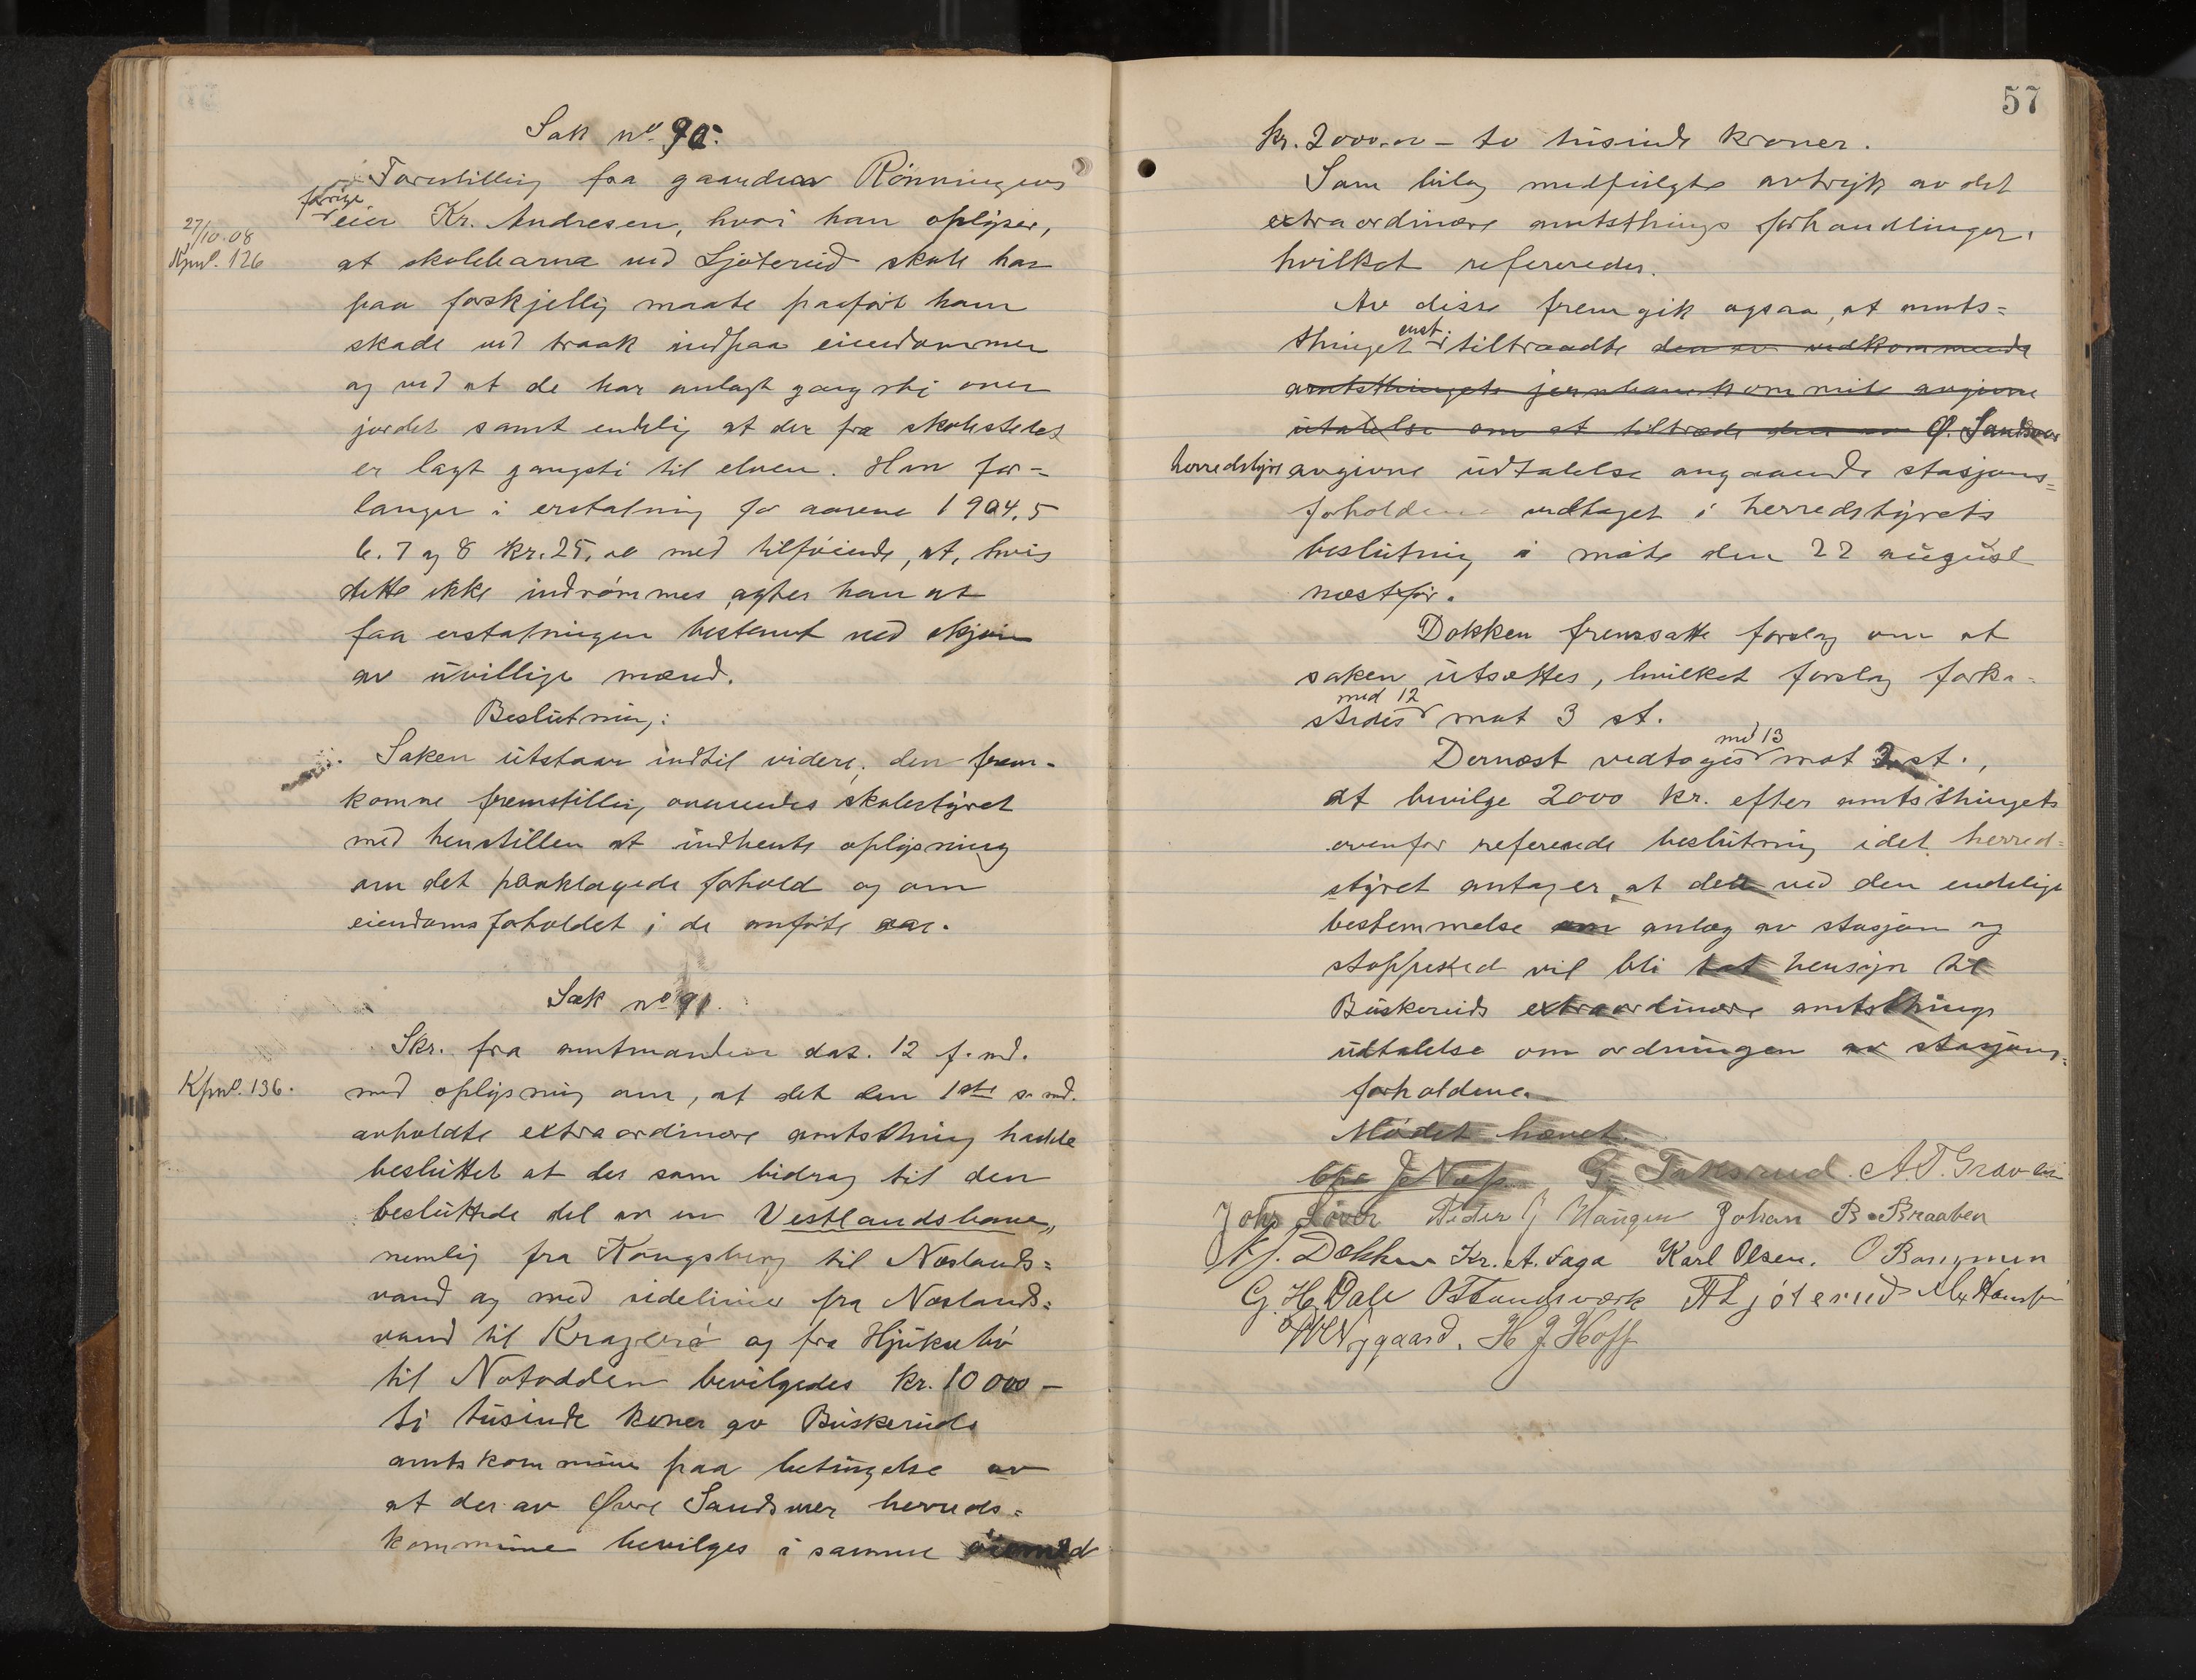 Sak no. 90.
Forestilling fra gaarden Rönningens
forrige
eier Kr. Andresen, hvori han oplyser,
27/10.08
Kpnl. 126
at skolebarna ved Ljöterud skole har
paa forskjellig maate paaført ham
skade ved traak indpaa eiendommen
og ved at de har anlagt gangsti over
jordet samt endelig at der fra skolestedet
er lagt gangsti til elven. Han for-
langer i erstatning for aarene 1904.5
6. 7 og 8 kr. 25,00 med tilføiende, at, hvis
dette ikke indrømmes, agter han at
faa erstatningen bestemt ved skjøn
av uvillige mænd.
Beslutning:
Saken utstaar indtil videre; den frem-
komne fremstilling oversendes skolestyret
med henstillen at indhente oplysning
om det paaklagede forhold og om
eiendomsforholdet i de anførte aar.
Sak no 91.
Skr. fra amtmanden dat. 12 f. md.
Kpnl. 136.
med oplysning om, at det den 1ste s. md.
avholdte extraordinære amtsthing hadde
besluttet at der som bidrag til den
besluttede del av en Vestlandsbane,
nemlig fra Kongsberg til Neslands-
vand og med sidelinier fra Neslands-
vand til Kragerø og fra Hjuksebø
til Notodden bevilgedes kr. 10000 -
ti tusinde kroner av Buskeruds
amtskommune paa betingelse av
at der av Øvre Sandsvær herreds-
kommune bevilges i samme øiemed
57
kr. 2000.00 - to tusinde kroner.
Som bilag medfulgte avtryk av det
extraordinære amtsthings forhandlinger,
hvilket refereredes.
Av disse fremgik ogsaa, at amts-
enst.
thinget tiltraadte den av vedkommende
amtsthingets jernbanekomite avgivne
utalelse om at tiltræde den av Ø. Sandsvær
herredstyre avgivne udtalelse angaaende stasjons-
forholdene vedtaget i herredstyrets
beslutning i møte den 22 august
næstfør.
Dokken fremsatte forslag om at
saken utsættes, hvilket forslag forka-
med 12
stedes mot 3 st.
med 13
Dernæst vedtoges mot 2 st.,
at bevilge 2000 kr. efter amtsthingets
ovenfor refererede beslutning idet herred-
styret antager, at der ved den endelige
bestemmelse om anlæg av stasjon og
stoppested vil bli tat hensyn til
Buskeruds extraordinære amtsthings
udtalelse om ordningen av stasjons-
forholdene.
Mødet hævet.
G. Taksrud. A.T. Gravli
Johs Løver Peder G Haugen Johan B. Braaben
N J. Dokken Kr. A. Saga Karl Olsen. O Bangmen
G. H. Dale O Sandsværk A Ljøterud
Nygaard. H J. Hoff